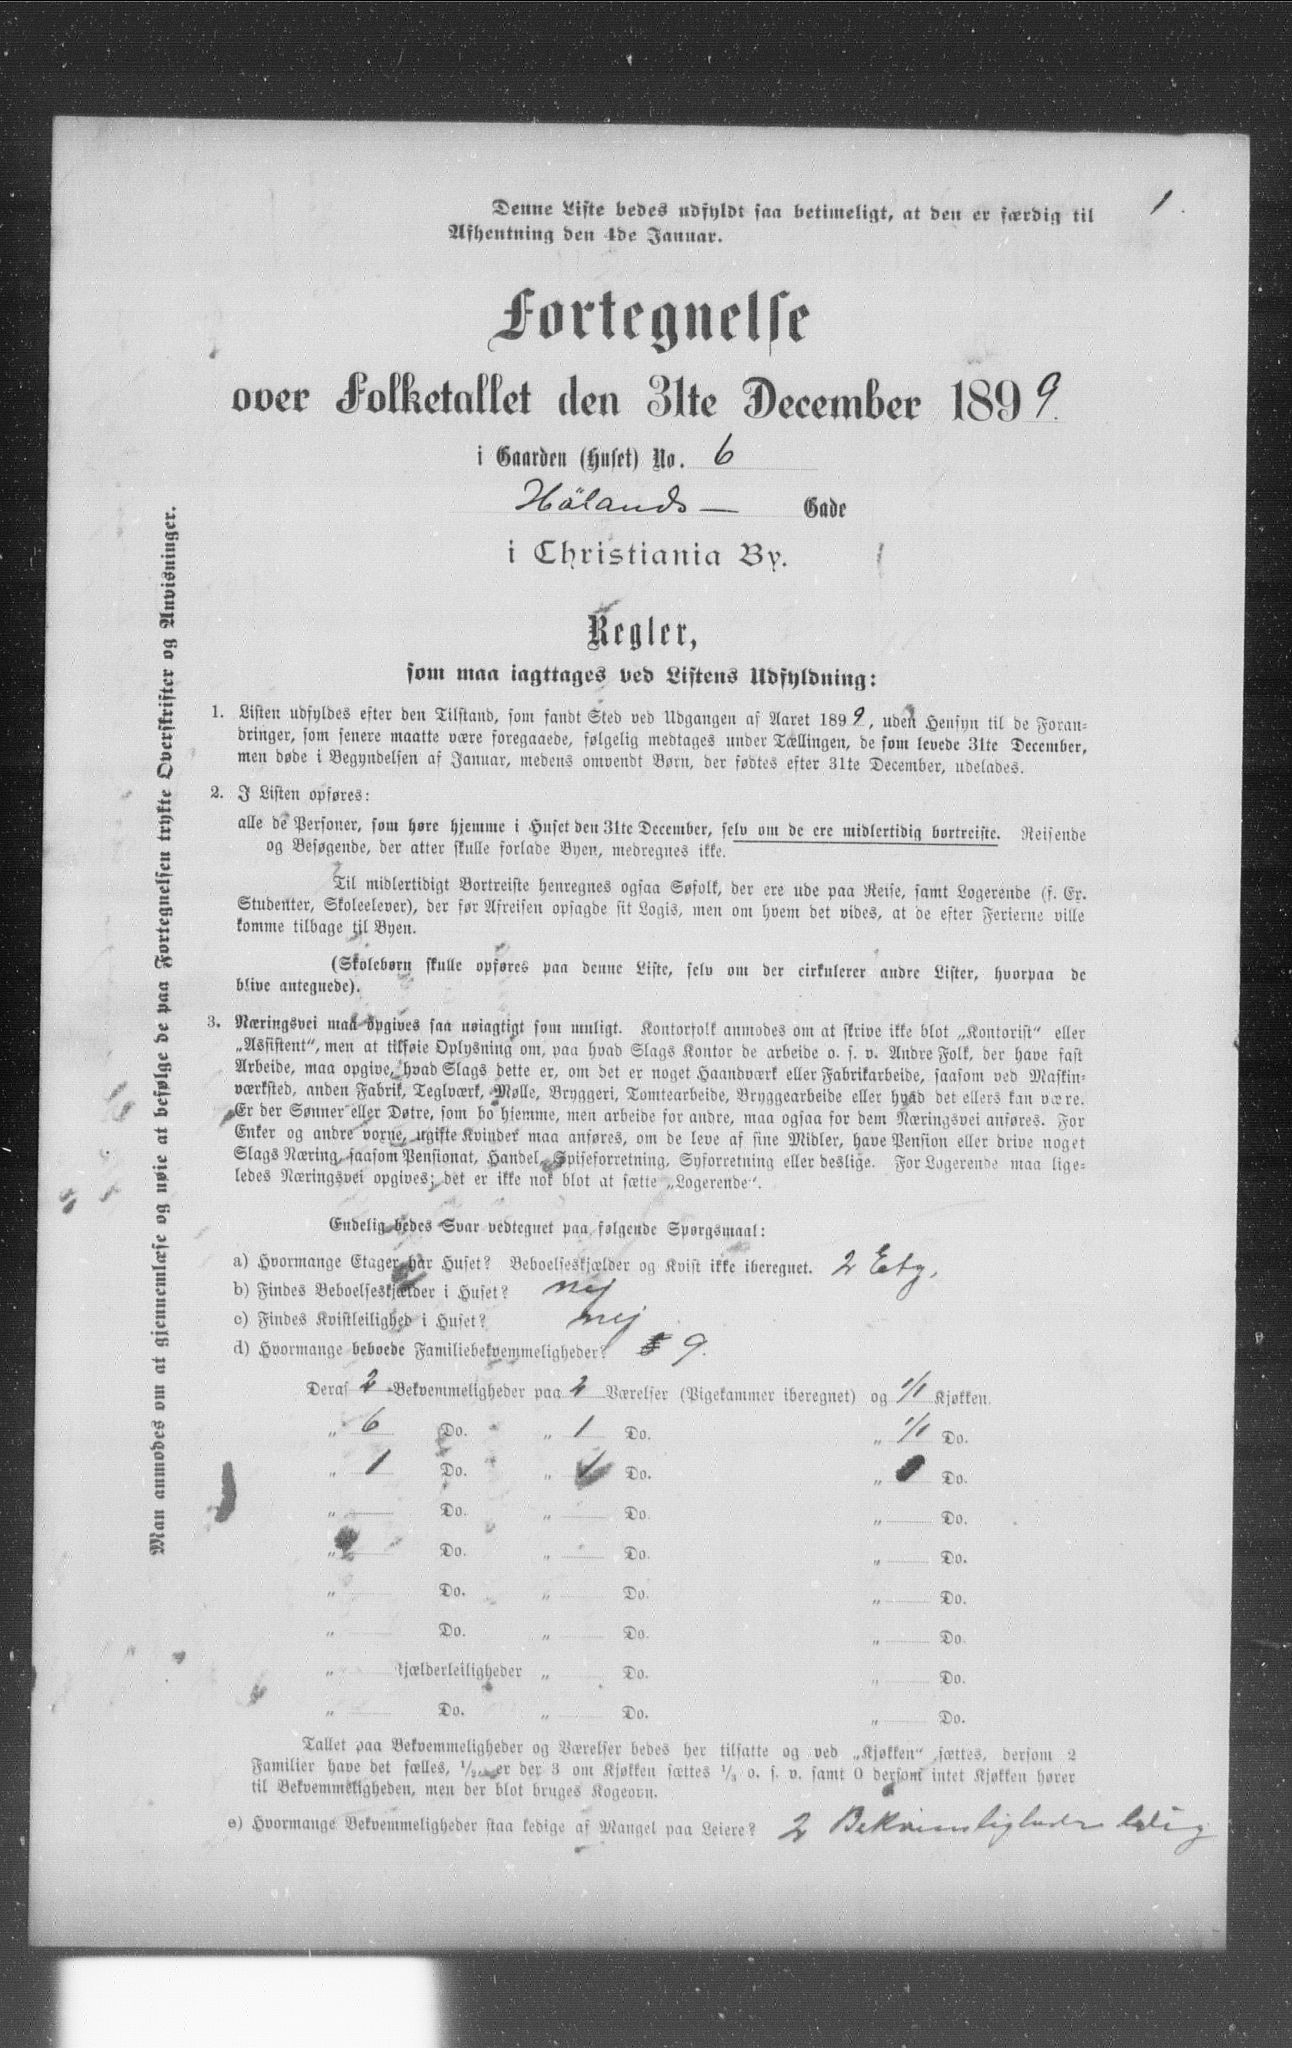 1
Denne Liste bedes udfyldt saa betimeligt, at den er færdig til
Afhentning den 4de Januar.
Fortegnelse
over Folketallet den 31te December 1899.
i Gaarden (Huset) No. 6
Hölands — Gade
i Christiania By.
Regler,
som maa iagttages ved Listens Udfyldning:
1. Listen udfyldes efter den Tilstand, som fandt Sted ved Udgangen af Aaret 1899, uden Hensyn til de Foran-
dringer, som senere maatte være foregaaede, følgelig medtages under Tællingen, de som levede 31te December,
men døde i Begyndelsen af Januar, medens omvendt Børn, der fødtes efter 31te December, udelades.
2. I Listen opføres:
alle de Personer, som høre hjemme i Huset den 31te December, selv om de ere midlertidig bortreiste. Reisende
og Besøgende, der atter skulle forlade Byen, medregnes ikke.
Til midlertidigt Bortreiste henregnes ogsaa Søfolk, der ere ude paa Reise, samt Logerende (f. Ex.
Studenter, Skoleelever), der før Afreisen opsagde sit Logis, men om hvem det vides, at de efter Ferierne ville
komme tilbage til Byen.
(Skolebørn skulle opføres paa denne Liste, selv om der cirkulerer andre Lister, hvorpaa de
blive antegnede).
3. Næringsvei maa opgives saa nøiagtigt som muligt. Kontorfolk anmodes om at skrive ikke blot „Kontorist“ eller
„Assistent“, men at tilføie Oplysning om, paa hvad Slags Kontor de arbeide o. s. v. Andre Folk, der have fast
Arbeide, maa opgive, hvad Slags dette er, om det er noget Haandværk eller Fabrikarbeide, saasom ved Maskin-
værksted, anden Fabrik, Teglværk, Mølle, Bryggeri, Tomtearbeide, Bryggearbeide eller hvad det ellers kan være.
Er der Sønner eller Døtre, som bo hjemme, men arbeide for andre, maa ogsaa for dem Næringsvei anføres. For
Enker og andre voxne, ugifte Kvinder maa anføres, om de leve af sine Midler, have Pension eller drive noget
Slags Næring, saasom Pensionat, Handel, Spiseforretning, Syforretning eller deslige. For Logerende maa lige-
ledes Næringsvei opgives; det er ikke nok blot at sætte „Logerende“.
Endelig bedes Svar vedtegnet paa følgende Spørgsmaal:
a) Hvormange Etager har Huset? Beboelseskjælder og Kvist ikke iberegnet. 2 Etg,
b) Findes Beboelseskjælder i Huset? nej
c) Findes Kvistleilighed i Huset? nej
d) Hvormange beboede Familiebekvemmeligheder? 9.
Deraf 2 Bekvemmeligheder paa 2 Værelser (Pigekammer iberegnet) og 1/1 Kjøkken.
„ 6 Do. „ 1 Do. „ 1/1 Do.
„ 1 Do. „ 1 Do. „ Do.
„ Do. „ Do. „ Do.
„ Do. „ Do. „ Do.
„ Do. „ Do. „ Do.
„ Do. „ Do. „ Do.
„ Kjælderleiligheder „ Do. „ Do.
„ Do. „ Do. „ Do.
Tallet paa Bekvemmeligheder og Værelser bedes her tilsatte og ved „Kjøkken“ sættes, dersom 2
Familier have det fælles, 1/2, er der 3 om Kjøkken sættes 1/3 o. s. v. samt 0 dersom intet Kjøkken hører
til Bekvemmeligheden, men der blot bruges Kogeovn.
e) Hvormange Bekvemmeligheder staa ledige af Mangel paa Leiere? 2 Bekvemligheder ledig
Man anmodes om at gjennemlæse og nøie at befølge de paa Fortegnelsen trykte Overskrifter og Anvisninger.